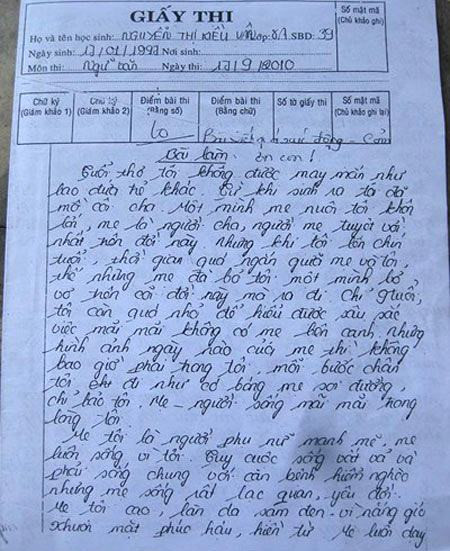 GIẤY THI
Họ và tên học sinh: NGUYỄN THỊ KIỀU VÂN Lớp: 8A SBD: 39
Ngày sinh: 17/01/1997 Nơi sinh:
Môn thi: Ngữ văn Ngày thi: 17/9/2010
Số mật mã
(Chủ khảo ghi)
Chữ ký
(Giám khảo 1)
Chữ ký
(Giám khảo 2)
Điểm bài thi
(Bằng số)
Điểm bài thi
(Bằng chữ)
Số tờ giấy thi
Số mật mã
(Chủ khảo ghi lại)
10
Bài viết quá xúc động - Cảm
ơn con!
Bài làm
Tuổi thơ tôi không được may mắn như
bao đứa trẻ khác. Từ khi sinh ra tôi đã
mồ côi cha. Một mình mẹ nuôi tôi khôn
lớn, mẹ là người cha, người mẹ tuyệt vời
nhất trên đời này. Nhưng khi tôi lên chín
tuổi, thời gian quá ngắn gười mẹ và tôi,
thế nhưng mẹ đã bỏ tôi một mình bơ
vơ trên cõi đời này mà ra đi. Chỉ 9 tuổi,
tôi còn quá nhỏ để hiểu được sâu sắc
việc mãi mãi không có mẹ bên cạnh, nhưng
hình ảnh ngày nào của mẹ thì không
bao giờ phai trong tôi, mỗi bước chân
tôi khi đi như có bóng mẹ soi đường,
chỉ bảo tôi. Mẹ - người sống mãi mãi trong
lòng tôi.
Mẹ tôi là người phụ nữ mạnh mẽ, mẹ
luôn sống vì tôi. Tuy cuộc sống vất vả và
phải sống chung với căn bệnh hiểm nghèo
nhưng mẹ sống rất lạc quan, yêu đời.
Mẹ tôi cao, làn da sạm đen vì nắng gió
khuôn mặt phúc hậu, hiền từ. Mẹ luôn dạy